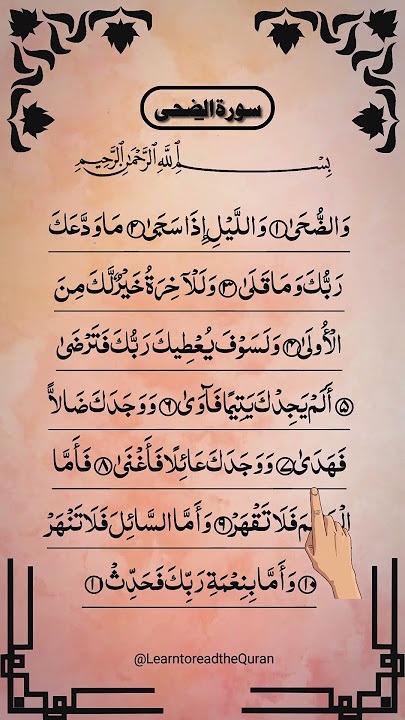 سورة الضحى
بِسْمِ اللَّهِ الرَّحْمَٰنِ الرَّحِيمِ
وَالضُّحَىٰ ١ وَاللَّيْلِ إِذَا سَجَىٰ ٢ مَا وَدَّعَكَ
رَبُّكَ وَمَا قَلَىٰ ٣ وَلَلْآخِرَةُ خَيْرٌ لَّكَ مِنَ
الْأُولَىٰ ٤ وَلَسَوْفَ يُعْطِيكَ رَبُّكَ فَتَرْضَىٰ
٥ أَلَمْ يَجِدْكَ يَتِيمًا فَآوَىٰ ٦ وَوَجَدَكَ ضَالًّا
فَهَدَىٰ ٧ وَوَجَدَكَ عَائِلًا فَأَغْنَىٰ ٨ فَأَمَّا
فَلَا تَقْهَرْ ٩ وَأَمَّا السَّائِلَ فَلَا تَنْهَرْ
١٠ وَأَمَّا بِنِعْمَةِ رَبِّكَ فَحَدِّثْ ١١
@LearntoreadtheQuran